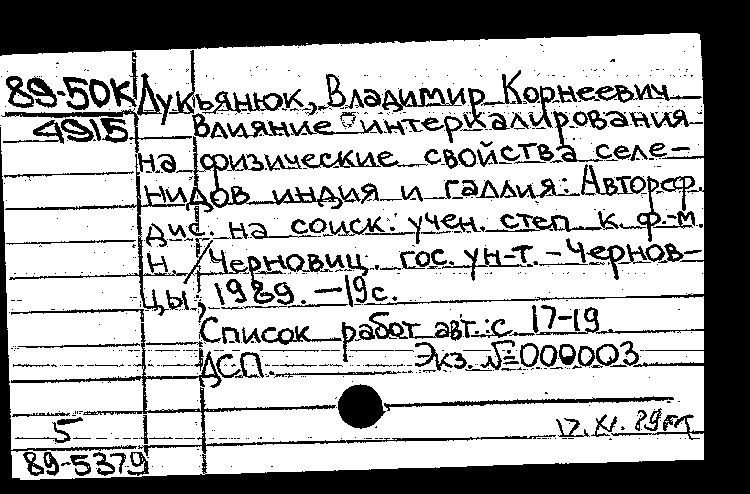 89-50К Лукьянюк, Владимир Корнеевич
4915 Влияние интеркалирования
на физические свойства селе-
нидов индия и галлия: Автореф.
дис. на соиск. учен. степ. к. ф.-м.
н. / Черновиц. гос. ун-т. - Чернов-
цы, 1989. - 19 с.
Список работ авт.: с. 17-19
ДСП. Экз. № 000003
5 17.XI.89
89-5379